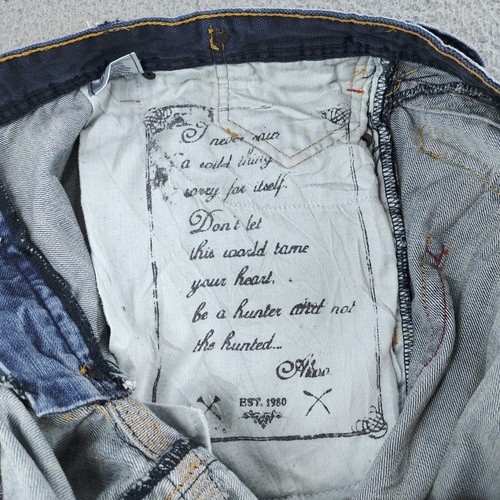 I never saw
a wild thing
sorry for itself.
Don't let
this world tame
your heart.
be a hunter and not
the hunted...
EST. 1980